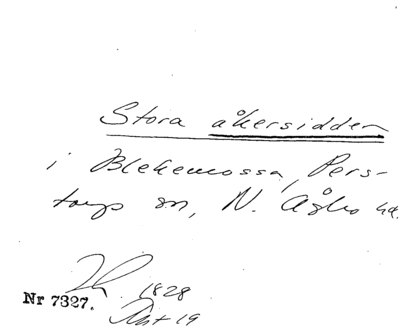 Stora åkersidden
i Blekemossa, Pers-
torps sn, N. Åsbo hd.
1828
Nr 7327. Akt 19